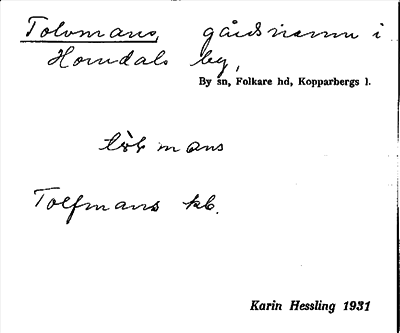 Tolvmans, gårdsnamn i
Horndals by,
By sn, Folkare hd, Kopparbergs l.
mans
Tolfmans kb.
Karin Hessling 1931